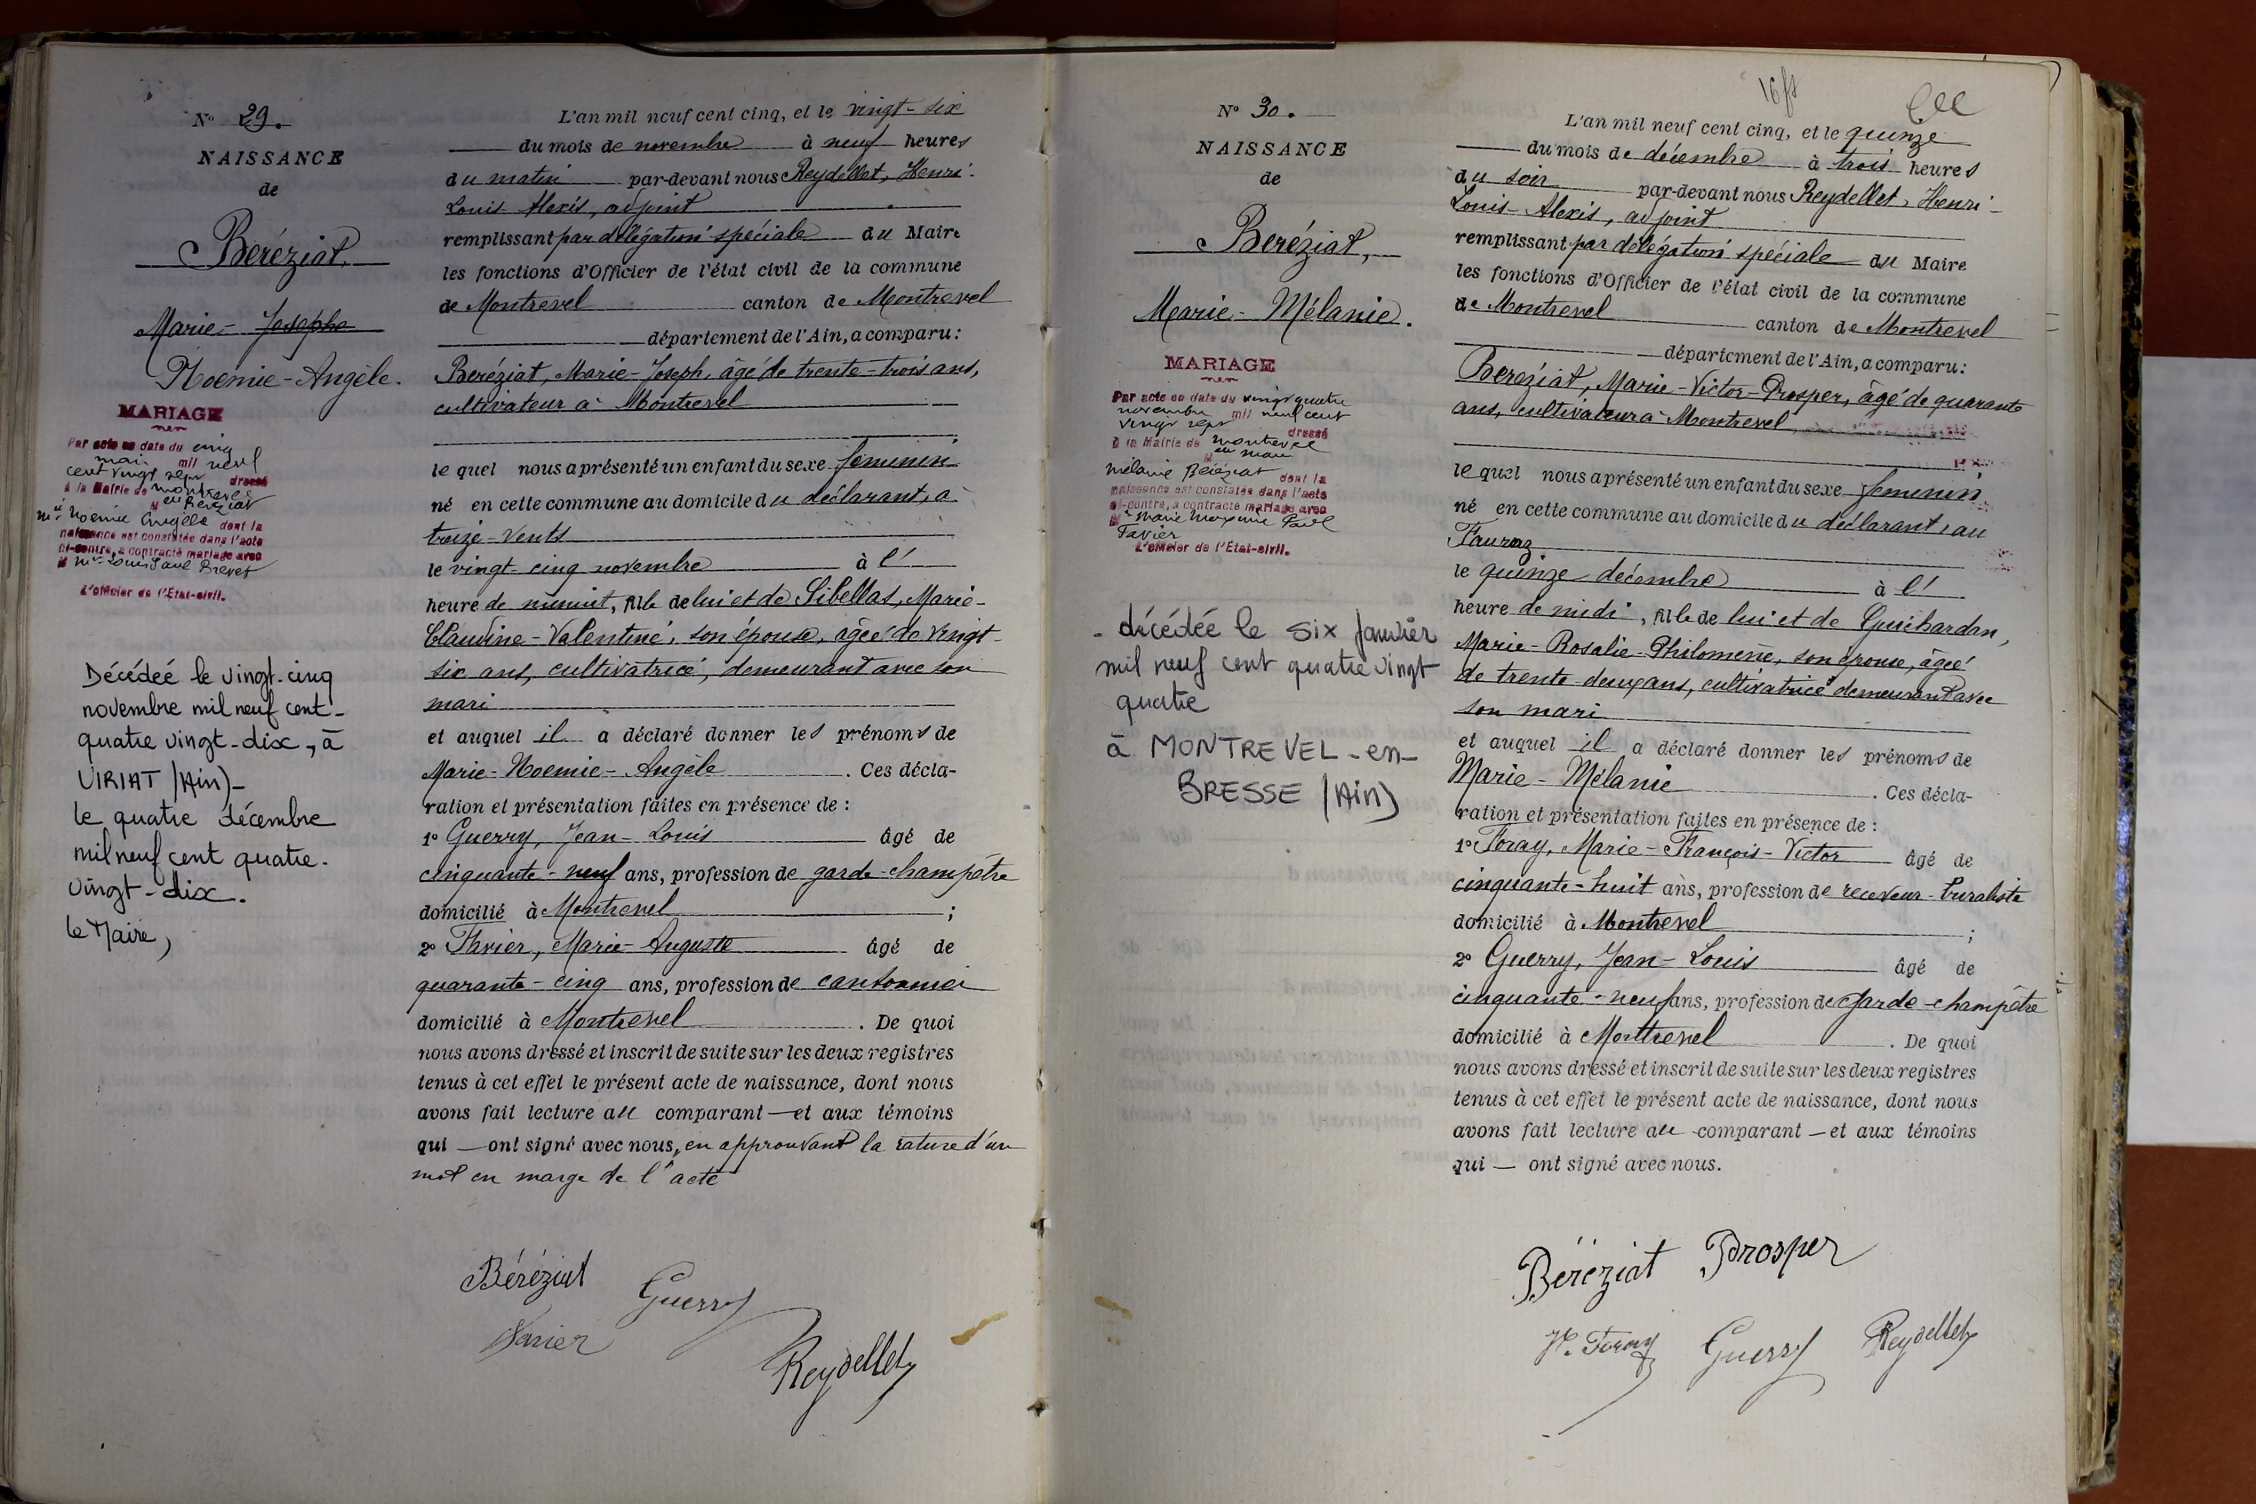 N° 29.
NAISSANCE
de
Beréziat,
Marie - Josephe
Noemie - Angèle.
MARIAGE
Par acte en date du cinq
mai mil neuf
cent vingt sept dressé
à la Mairie de Montrevel
en Bereziat
Mie Noemie Angèle dont la
naissance est constatée dans l'acte
ci-contre, a contracté mariage avec
M Mie Louis Paul Brevet
L'officier de l'État-civil.
Décédée le vingt-cinq
novembre mil neuf cent-
quatre vingt-dix, à
VIRIAT (Ain)-
le quatre décembre
mil neuf cent quatre-
vingt-dix.
le Maire,
L'an mil neuf cent cinq, et le vingt-six
du mois de novembre à neuf heures
du matin par-devant nous Reydellet, Henri-
Louis Alexis, adjoint
remplissant par délégation spéciale du Maire
les fonctions d'Officier de l'état civil de la commune
de Montrevel canton de Montrevel
département de l'Ain, a comparu:
Beréziat, Marie-Joseph, âgé de trente-trois ans,
cultivateur à Montrevel
lequel nous a présenté un enfant du sexe féminin
né en cette commune au domicile du déclarant, à
treize-vents
le vingt-cinq novembre à l'
heure de minuit, fille de lui et de Sibellas, Marie-
Claudine-Valentine, son épouse, âgée de vingt-
six ans, cultivatrice, demeurant avec son
mari
et auquel il a déclaré donner les prénoms de
Marie-Noemie-Angèle. Ces décla-
ration et présentation faites en présence de :
1° Guerry, Jean-Louis âgé de
cinquante-neuf ans, profession de garde-champêtre
domicilié à Montrevel ;
2° Favier, Marie-Auguste âgé de
quarante-cinq ans, profession de cantonnier
domicilié à Montrevel. De quoi
nous avons dressé et inscrit de suite sur les deux registres
tenus à cet effet le présent acte de naissance, dont nous
avons fait lecture au comparant — et aux témoins
qui — ont signé avec nous, en approuvant la rature d'un
mot en marge de l'acte
Béréziat Guerry
Favier Reydellet
16 ft
N° 30.
NAISSANCE
de
Beréziat,
Marie - Mélanie.
MARIAGE
Par acte en date du vingt quatre
novembre mil neuf cent
vingt sept dressé
à la Mairie de Montrevel
en Marie
Mélanie Bereziat dont la
naissance est constatée dans l'acte
ci-contre, a contracté mariage avec
M Marie Maxime Paul
Favier
L'officier de l'État-civil.
- décédée le six janvier
mil neuf cent quatre vingt
quatre
à MONTREVEL-en-
BRESSE (Ain)
L'an mil neuf cent cinq, et le quinze
du mois de décembre à trois heures
du soir par-devant nous Reydellet, Henri-
Louis-Alexis, adjoint
remplissant par délégation spéciale du Maire
les fonctions d'Officier de l'état civil de la commune
de Montrevel canton de Montrevel
département de l'Ain, a comparu:
Bereziat, Marie-Victor-Prosper, âgé de quarante
ans, cultivateur à Montrevel
lequel nous a présenté un enfant du sexe féminin
né en cette commune au domicile du déclarant, au
Fauraz
le quinze décembre à l'
heure de midi, fille de lui et de Guichardan,
Marie-Rosalie-Philomène, son épouse, âgée
de trente-deux ans, cultivatrice demeurant avec
son mari
et auquel il a déclaré donner les prénoms de
Marie-Mélanie. Ces décla-
ration et présentation faites en présence de :
1° Foray, Marie-François-Victor âgé de
cinquante-huit ans, profession de receveur-buraliste
domicilié à Montrevel ;
2° Guerry, Jean-Louis âgé de
cinquante-neuf ans, profession de garde-champêtre
domicilié à Montrevel. De quoi
nous avons dressé et inscrit de suite sur les deux registres
tenus à cet effet le présent acte de naissance, dont nous
avons fait lecture au comparant — et aux témoins
qui — ont signé avec nous.
Béréziat Prosper
V. Foray Guerry Reydellet